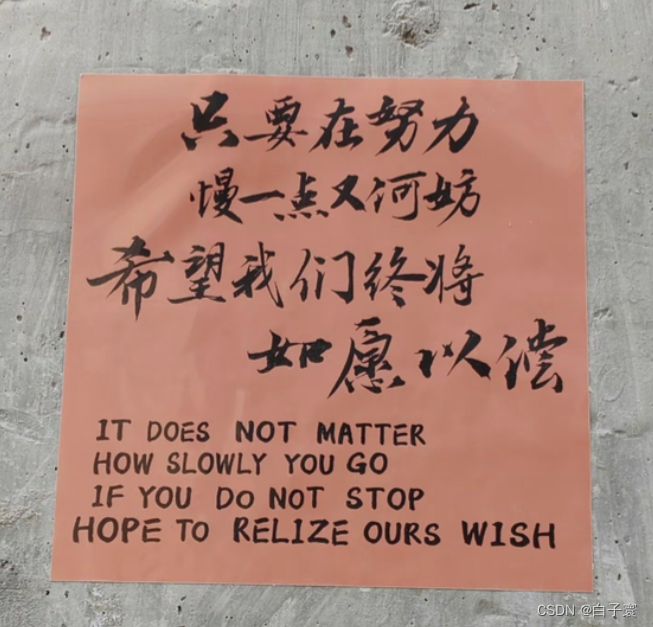 只要在努力
慢一点又何妨
希望我们终将
如愿以偿
IT DOES NOT MATTER
HOW SLOWLY YOU GO
IF YOU DO NOT STOP
HOPE TO RELIZE OURS WISH
CSDN @白子寰